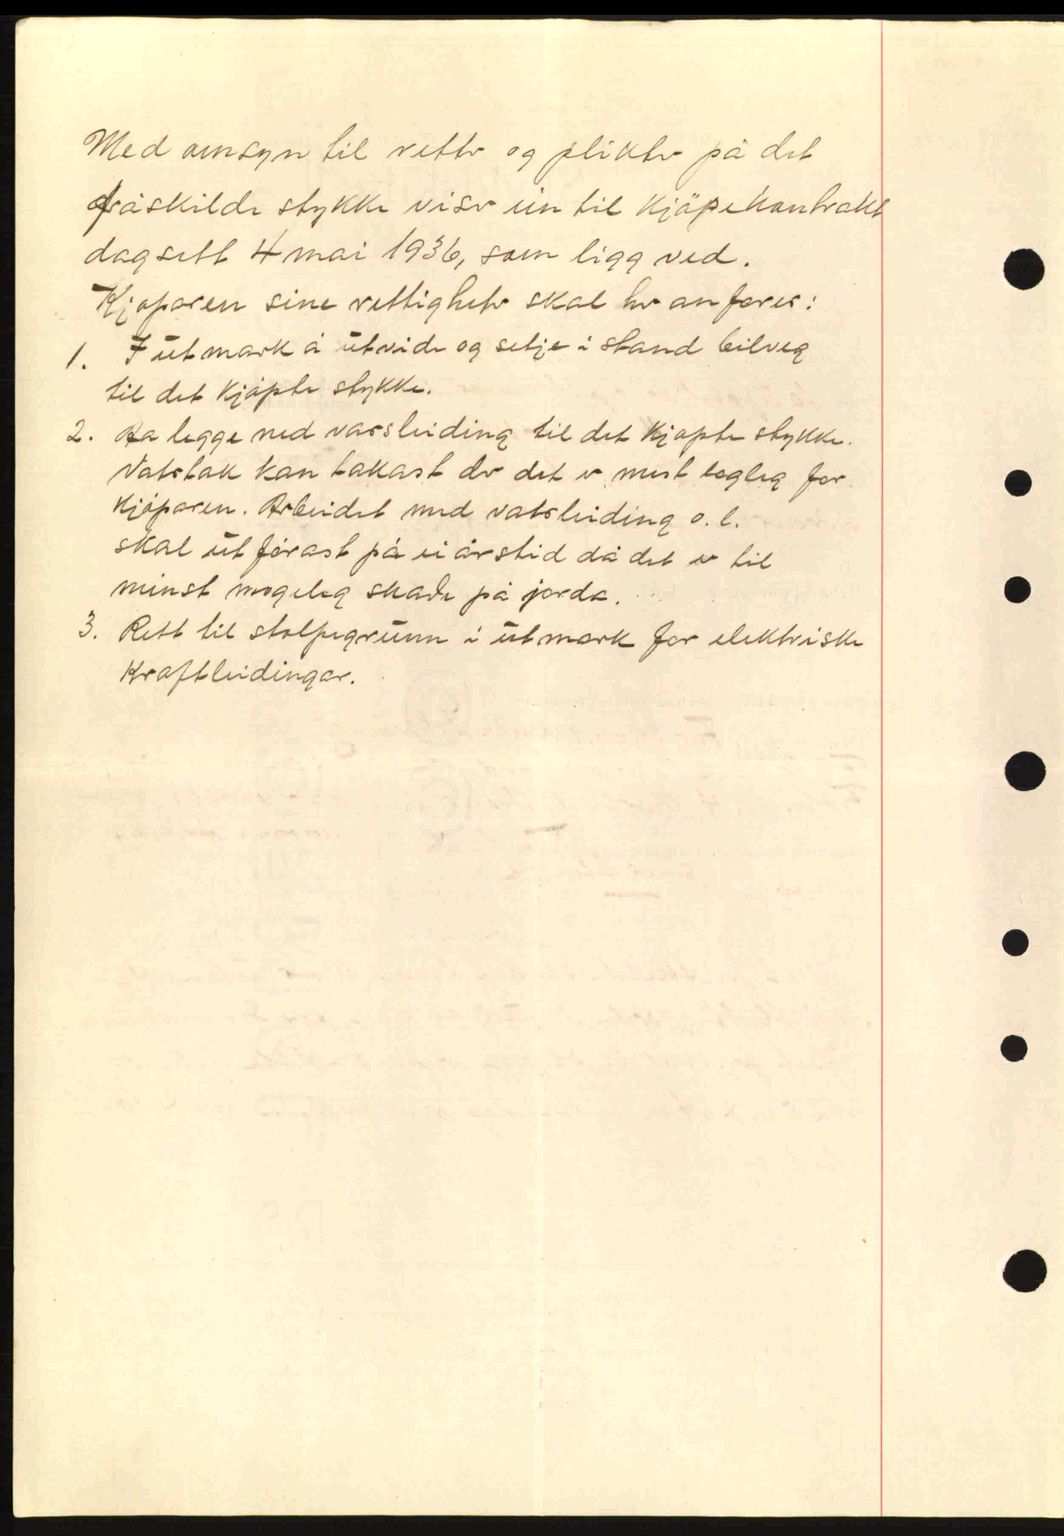 Med omsyn til retter og plikter på det
fråskilde stykke viser ein til kjöpekontrakt
dagsett 4 mai 1936, som ligg ved.
Kjøparen sine rettigheter skal her anføres:
1. I utmark å utvide og setje i stand bilveg
til det kjöpte stykke.
2. Aa legge ned vassleiding til det kjøpte stykke.
Vatstak kan takast der det er mest togleg for
kjöparen. Arbeidet med vatsleiding o.l.
skal utförast på ei årstid då det er til
minst mogeleg skade på jorda.
3. Rett til stolpegrunn i utmark for elektriske
kraftleidingar.